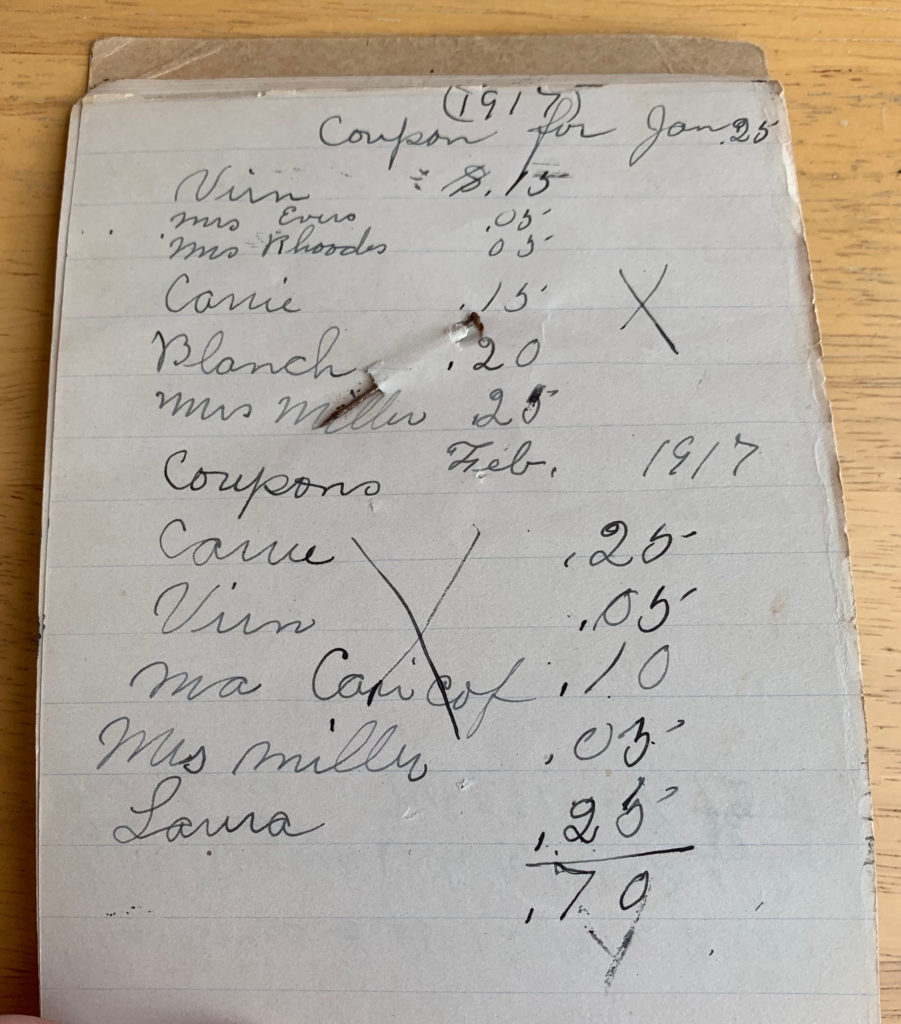 (1917)
Coupon for Jan. 25
Virn $.15
Mrs Evers .05
Mrs Rhoods 05
Carrie .15
Blanch .20
Mrs Miller .25
Coupons Feb. 1917
Carrie .25
Virn .05
Ma Caricof .10
Mrs Miller .05
Laura .25
.70